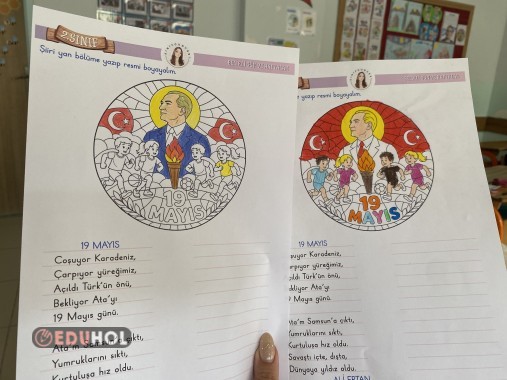 2.SINIF
Şiiri yan bölüme yazıp resmi boyayalım.
19
MAYIS
19 MAYIS
Coşuyor Karadeniz,
Çarpıyor yüreğimiz,
Açıldı Türk'ün önü,
Bekliyor Ata'yı
19 Mayıs günü.
Ata'm Samsun'a çıktı,
Yumruklarını sıktı,
Kurtuluşa hız oldu.
EDUHOL
yazıp resmi boyayalım.
19
MAYIS
19 MAYIS
Karadeniz,
yüreğimiz,
Türk'ün önü,
Ata'yı
Mayıs günü.
Samsun'a çıktı,
sıktı,
Kurtuluşa hız oldu.
Savaştı içte, dışta,
Dünyaya yıldız oldu.